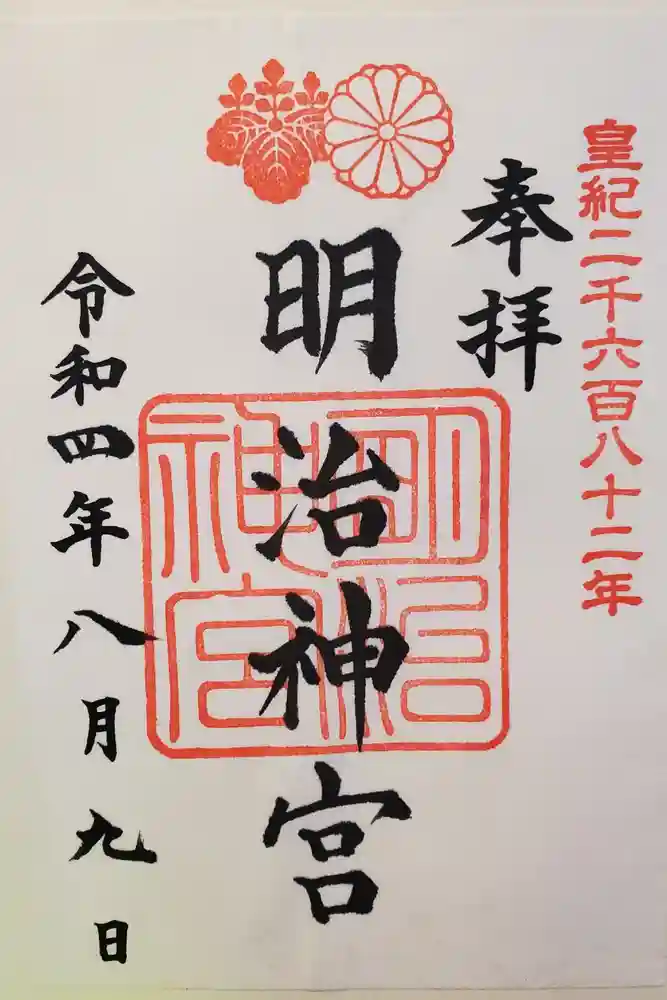 皇紀二千六百八十二年
奉拝
明治神宮
明治神宮
令和四年八月九日